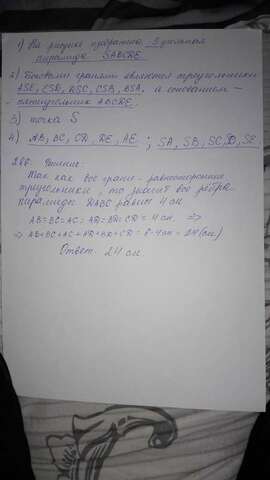 1) На рисунке изображена 5 угольная
пирамида SABCDE
2) Боковыми гранями являются треугольники
ASE, ESD, DSC, CSB, BSA, а основанием –
– пятиугольник ABCDE.
3) точка S
4) AB, BC, CD, DE, AE ; SA, SB, SC, SD, SE
Так как все грани - равносторонние
треугольники, то значит все ребра
пирамиды DABC равны 4 см
AB=BC=AC=AD=BD=CD=4 см ⇒
⇒ AB+BC+AC+AD+BD+CD=6·4см=24(см)
Ответ: 24 см